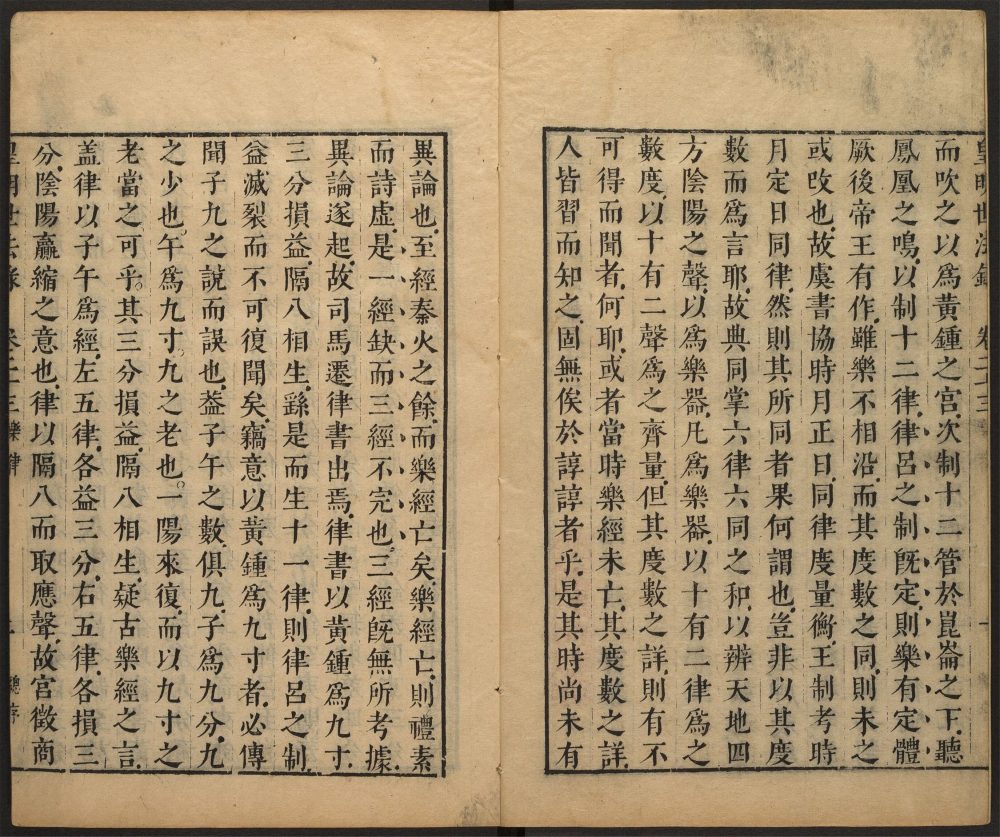 皇明世法錄 卷二十三 一
而吹之以爲黃鍾之宮次制十二管於崑崙之下聽
鳳凰之鳴以制十二律律呂之制旣定則樂有定體
厥後帝王有作雖樂不相沿而其度數之同則未之
或攺也故虞書協時月正日同律度量衡王制考時
月定日同律然則其所同者果何謂也豈非以其度
數而爲言耶故典同掌六律六同之和以辨天地四
方陰陽之聲以爲樂器凡爲樂器以十有二律爲之
數度以十有二聲爲之齊量但其度數之詳則有不
可得而聞者何耶或者當時樂經未亡其度數之詳
人皆習而知之固無俟於諄諄者乎是其時尚未有
異論也至經秦火之餘而樂經亡矣樂經亡則禮素
而詩虛是一經缺而三經不完也三經旣無所考據
異論遂起故司馬遷律書出焉律書以黃鍾爲九寸
三分損益隔八相生繇是而生十一律則律呂之制
益滅裂而不可復聞矣竊意以黃鍾爲九寸者必傳
聞子九之說而誤也葢子午之數俱九子爲九分九
之少也午爲九寸九之老也一陽來復而以九寸之
老當之可乎其三分損益隔八相生疑古樂經之言
盖律以子午爲經左五律各益三分右五律各損三
分陰陽羸縮之意也律以隔八而取應聲故宮徵商
皇明世法錄 卷二十三樂律 二 總序